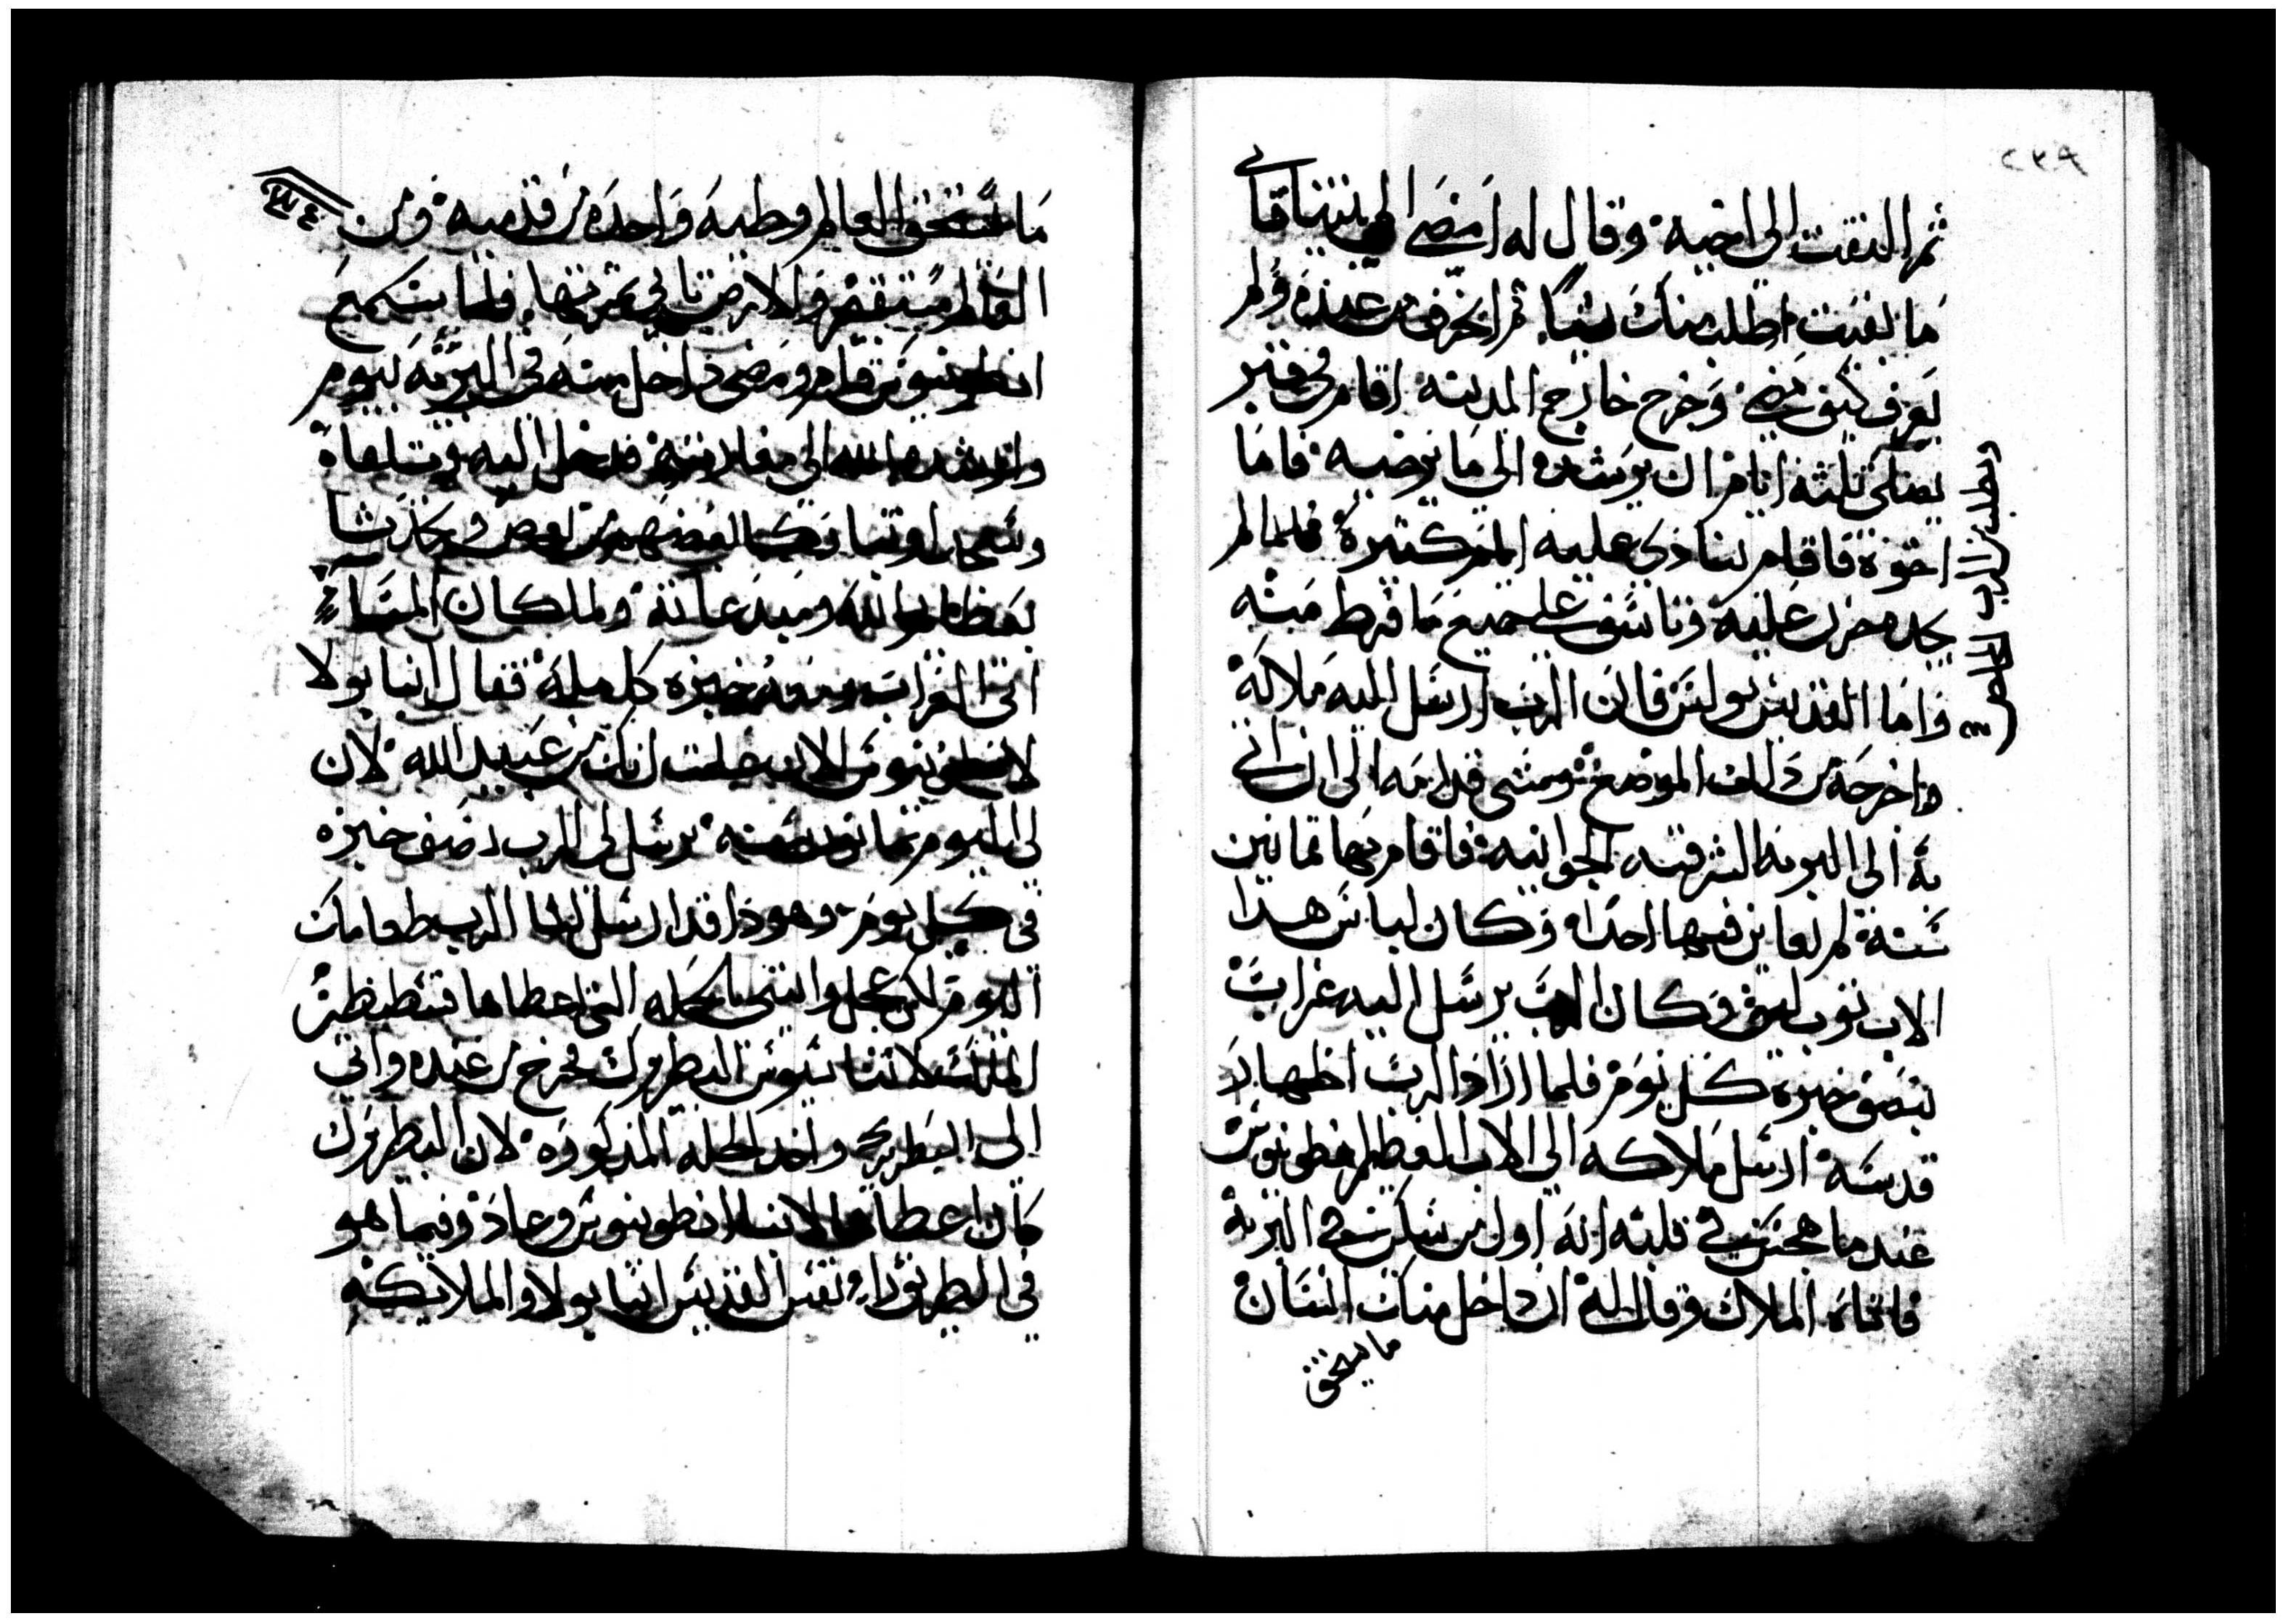 ثم التفت الى اخيه وقال له امضى الى بيتنا فاني
ما بقيت اطلب منك شيا ثم انحرف من عنده ولم
يعرف كيف مضى وخرج خارج المدينه اقام في قبر
يصلي ثلثة ايام ان يرشده الى ما يرضيه فاما
اخوة فاقام ينادي عليه ايام كثيرة فلما لم
يجده حزن عليه وتاسف على جميع ما فرط منه
واما القديس بولس فان الرب ارسل اليه ملاكه
واخرجه من ذالك الموضع ومشى قدامه الى ان اتى
به الى البريه الشرقيه الجوانيه فاقام بها ثمانين
سنة لم يعاين فيها احدا وكان لباس هدا
الاب ثوب ليف وكان الرب يرسل اليه غراب
بنصف خبزه كل يوم فلما اراد الرب اظهار
قدسه ارسل ملاكه الى الاب العظيم انطونيوس
عندما هجس في قلبه انه اول من سكن في البريه
فاتاه الملاك وقال له ان داخل منك انسان
ما يستحق
ويطلب من الرب
ما يستحق العالم وطيه واحده من قدميه ومن
العالم والارض تاتي بثمرتها فلما سمع
انطونيوس قام ومضى داخل منه في البريه يوم
وارشده الله الى مغارته فدخل اليه وتلقاه
وسجدا وتباركا بعضهم من بعض وجلسا
بعظايم الله ولما كان المساء
اتى الغراب ومعه خبزه كامله فقال انبا بولا
لانطونيوس الان علمت انك من عبيد الله لان
لى اليوم ثمانون سنه يرسل لي الرب نصف خبزه
في كل يوم وهوذا قد ارسل لنا الرب طعامك
اليوم لكن عجل واتيني بالحله التي اعطاها قسطنطين
الملك لاثناسيوس البطريرك فخرج من عنده واتى
الى البطريرك واخد الحله المدكوره لان البطريرك
كان اعطاها لانبا انطونيوس وعاد وفيما هو
في الطريق راى نفس القديس انبا بولا والملايكه